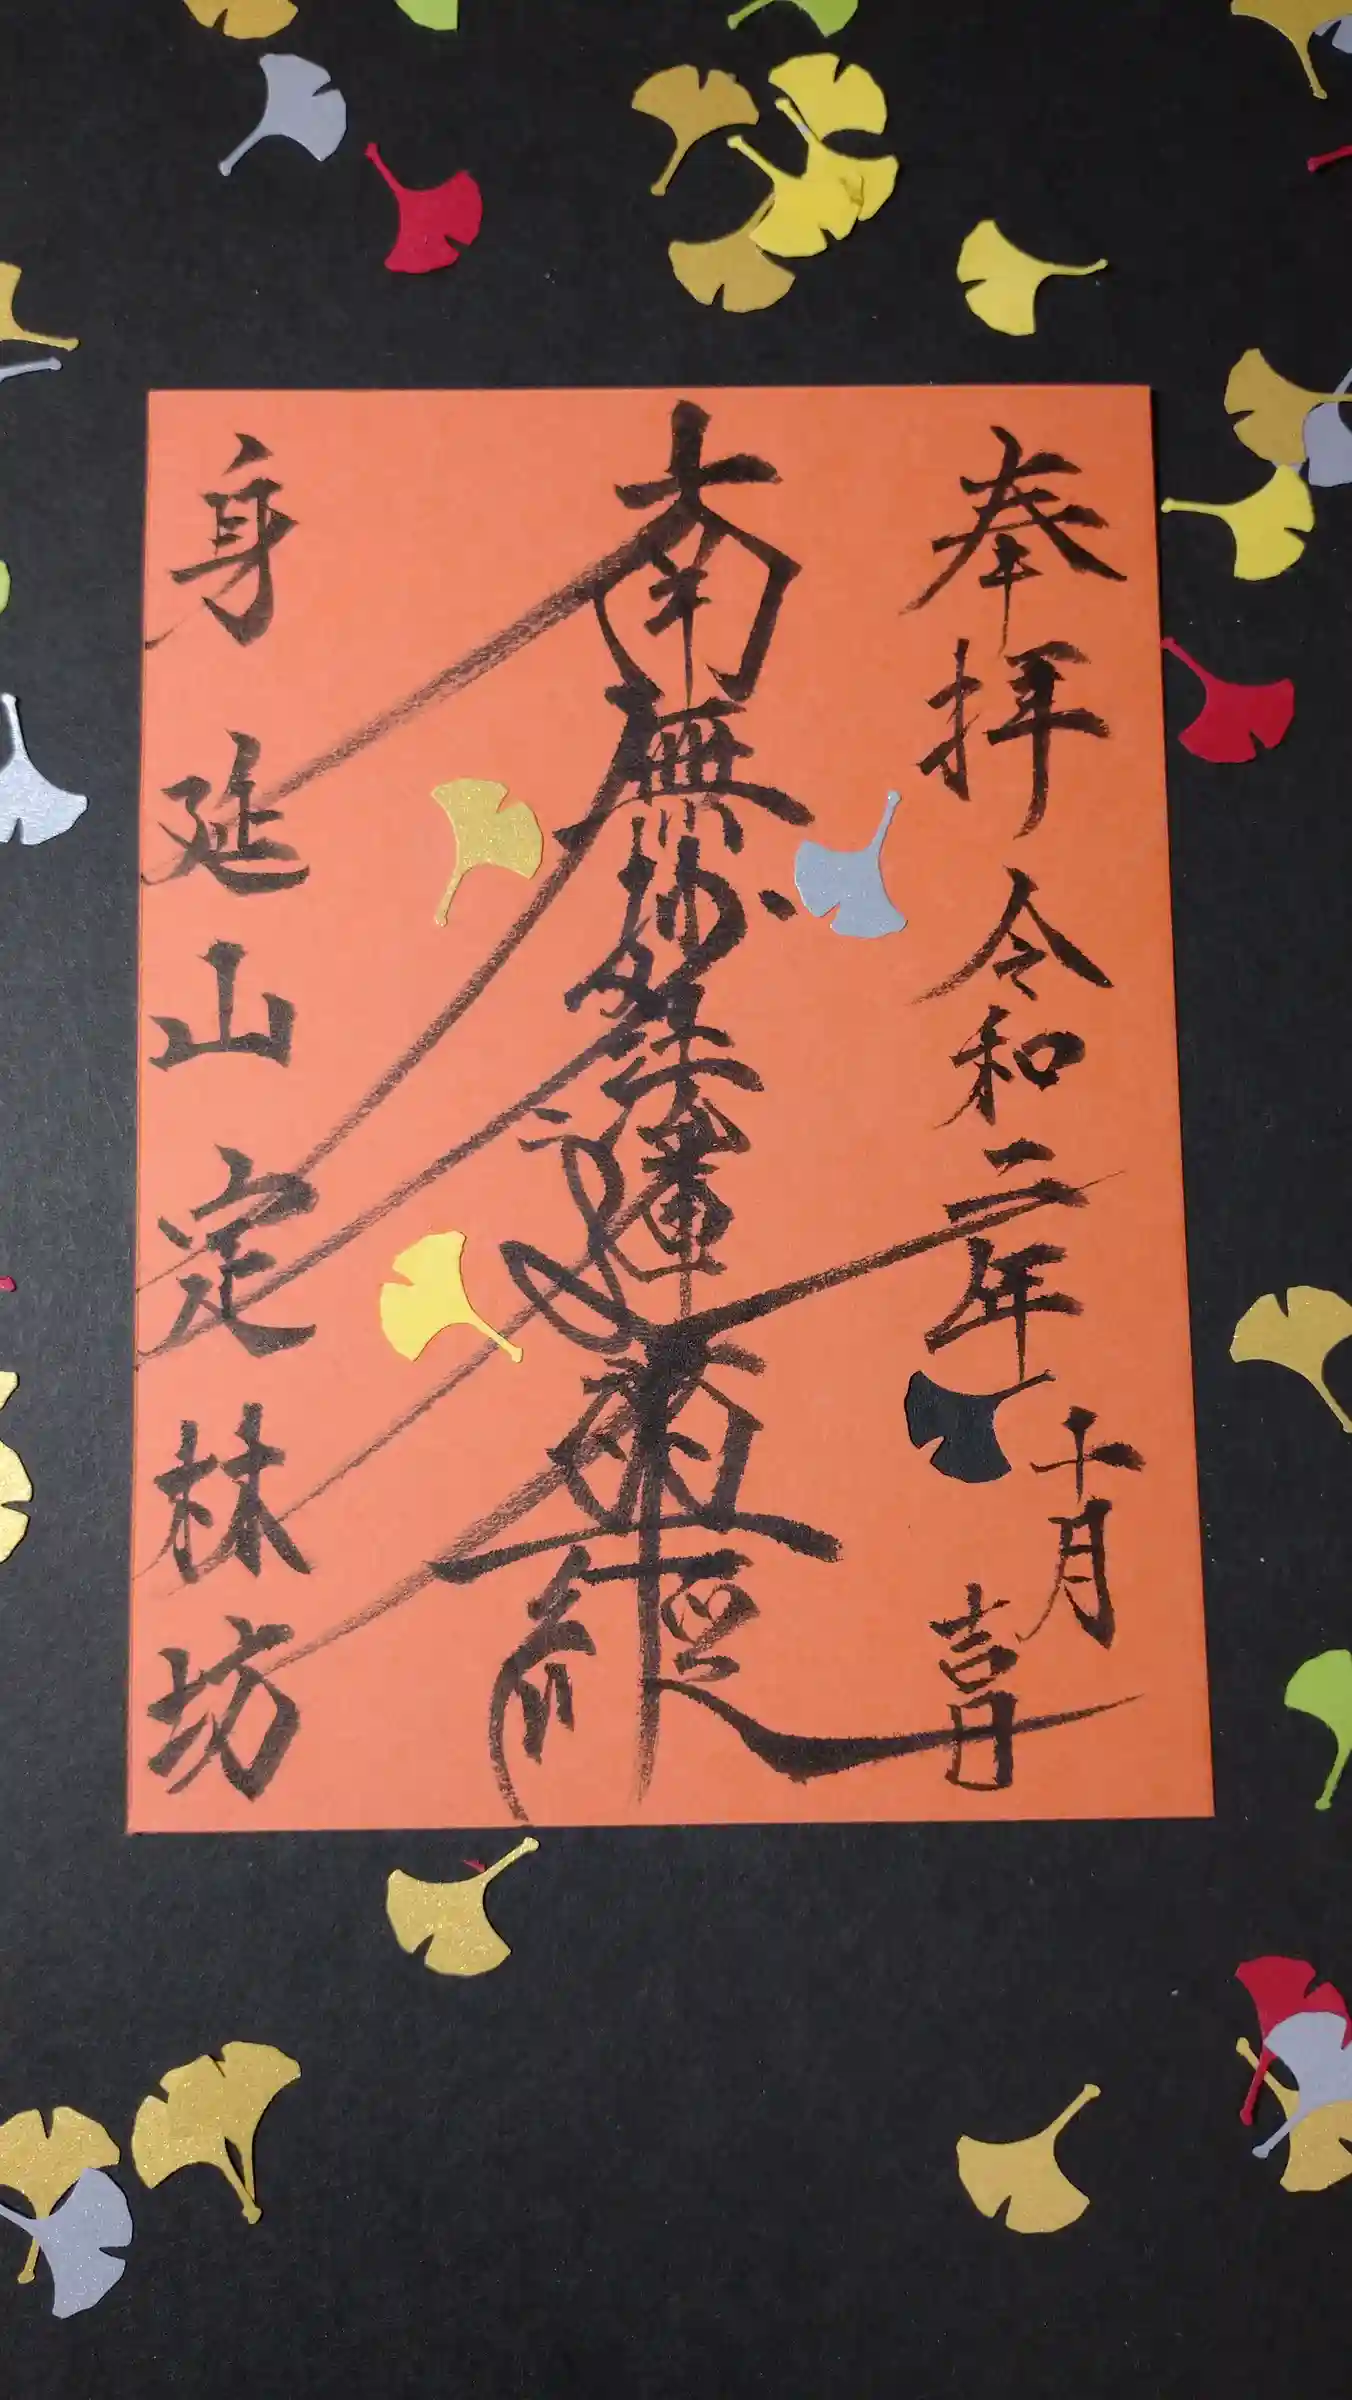 奉拝 令和二年十月吉日
南無妙法蓮華經
身延山定林坊